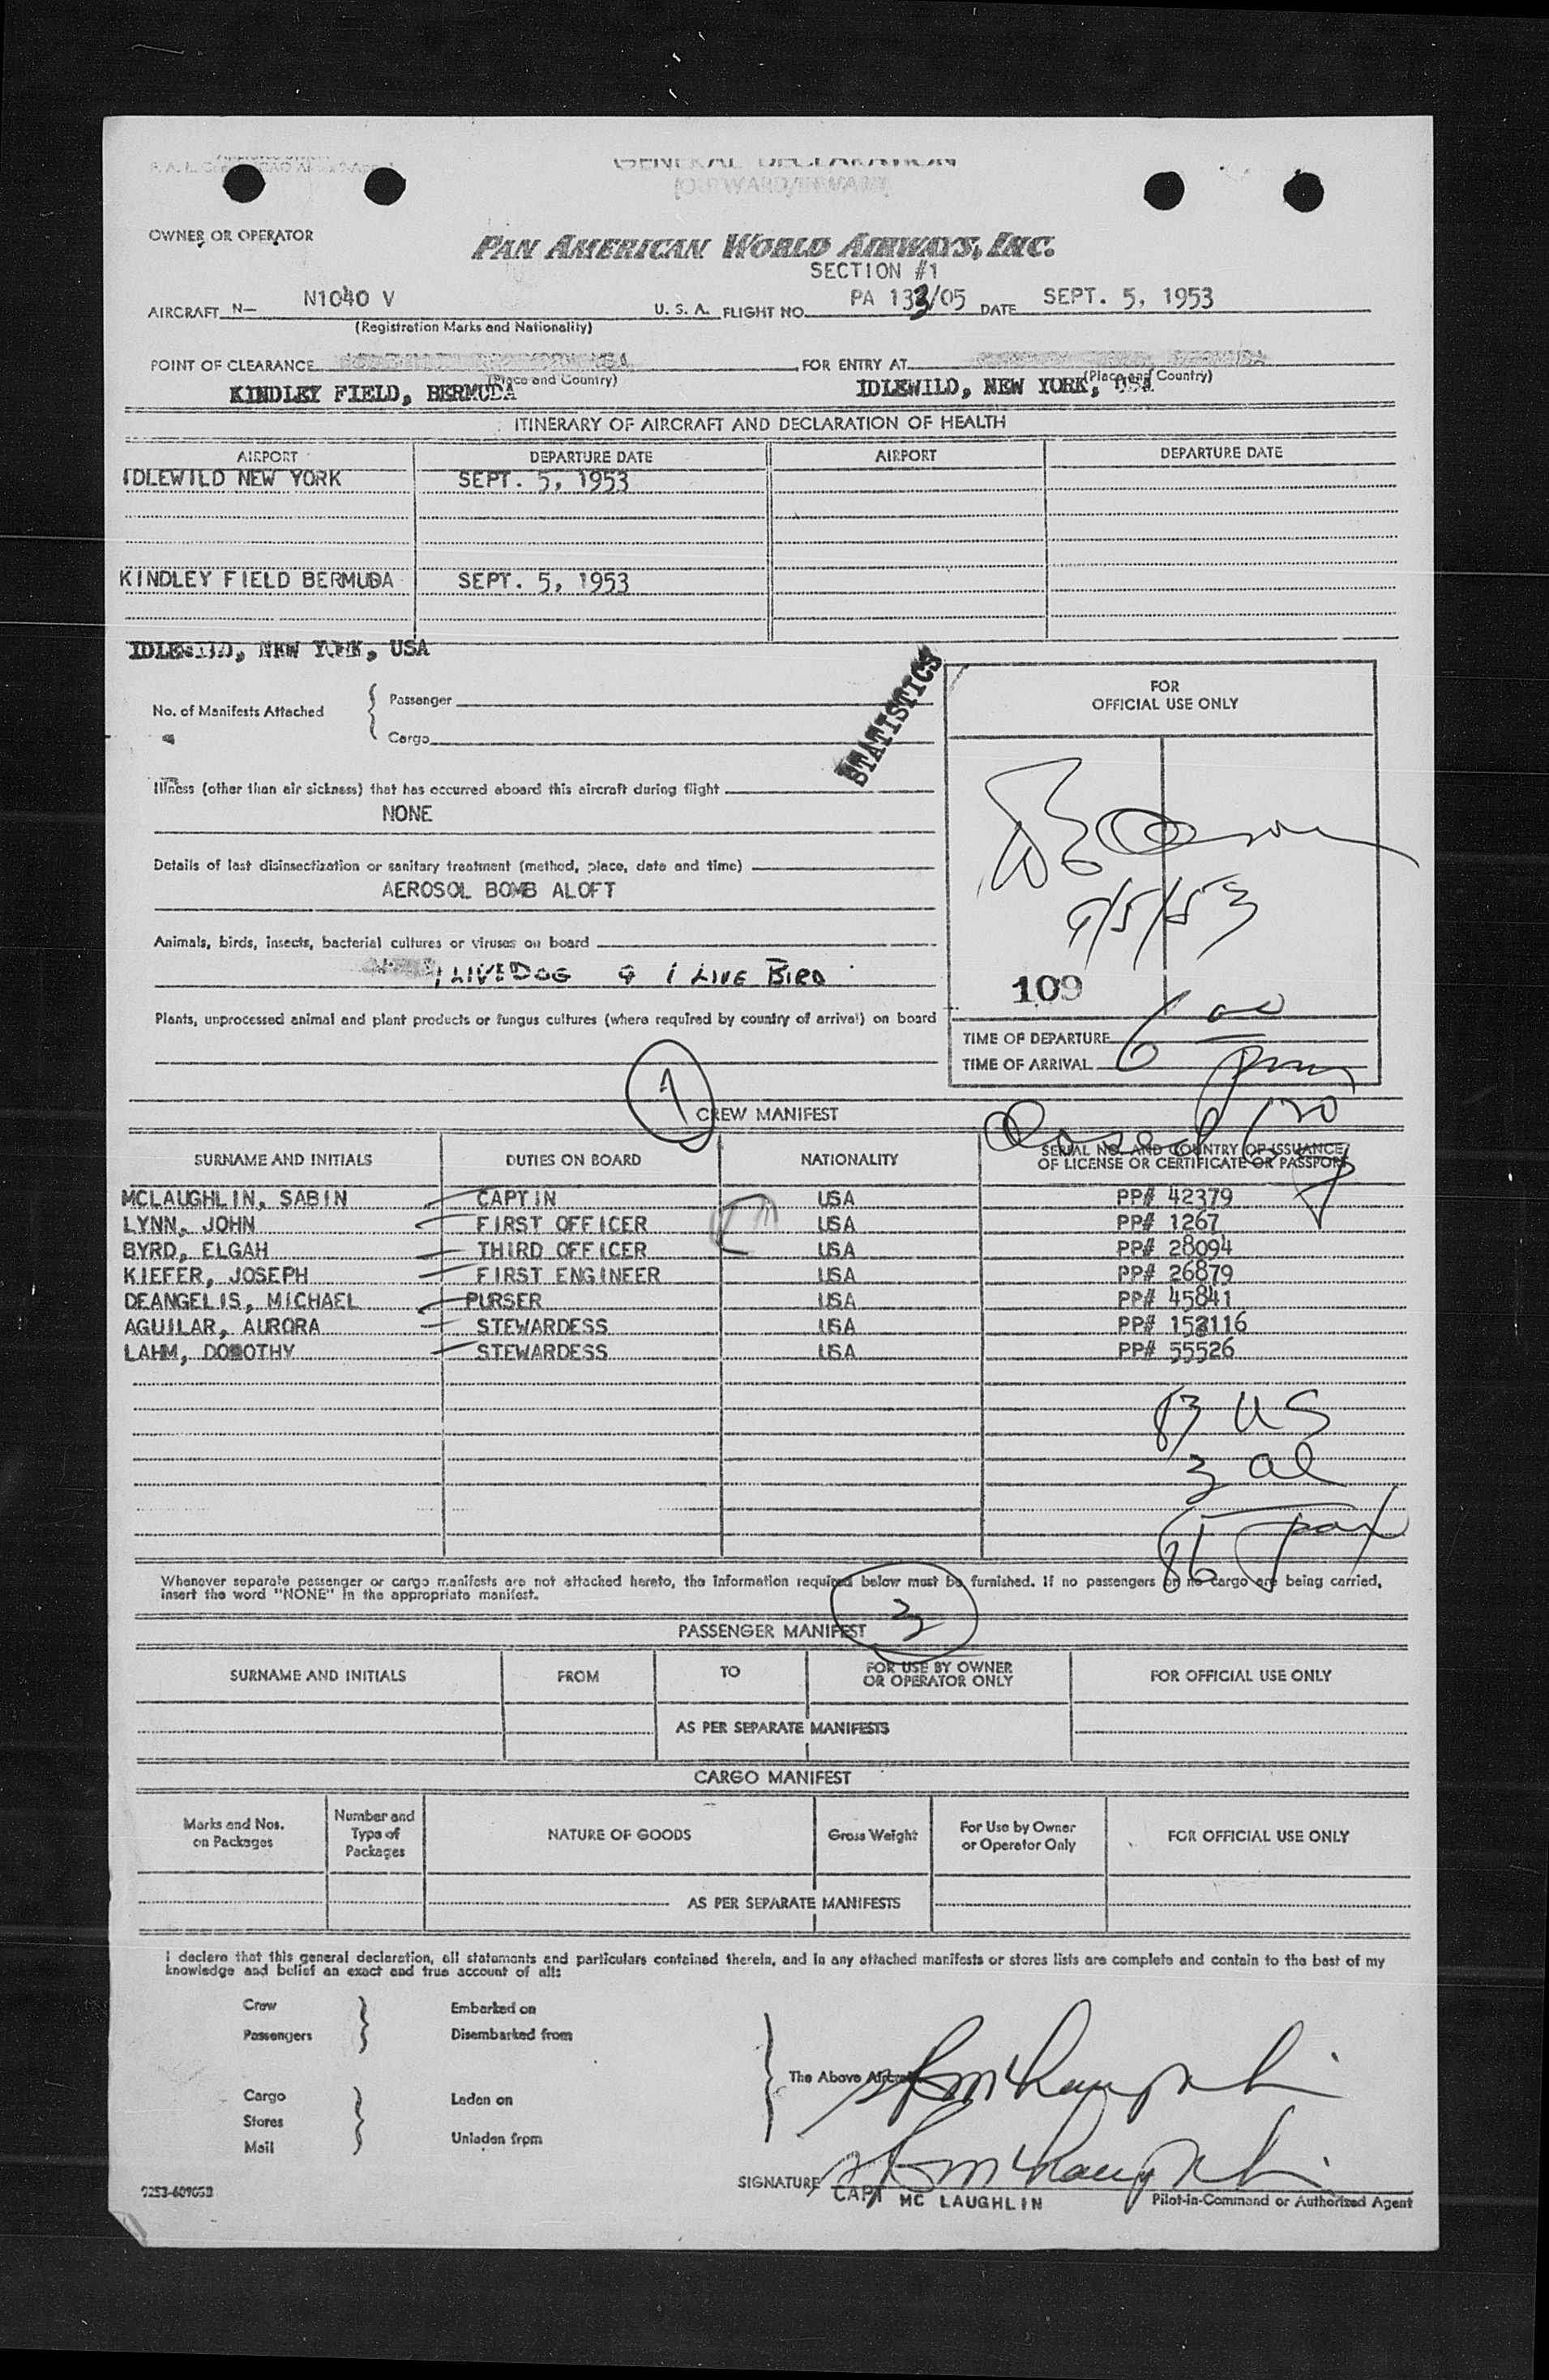 GENERAL DECLARATION
(OUTWARD/INWARD)
OWNER OR OPERATOR
PAN AMERICAN WORLD AIRWAYS, INC.
SECTION #1
AIRCRAFT N— N1040 V U. S. A. FLIGHT NO. PA 133/05 DATE SEPT. 5, 1953
(Registration Marks and Nationality)
POINT OF CLEARANCE FOR ENTRY AT
(Place and Country) (Place and Country)
KINDLEY FIELD, BERMUDA IDLEWILD, NEW YORK, USA
ITINERARY OF AIRCRAFT AND DECLARATION OF HEALTH
AIRPORT DEPARTURE DATE AIRPORT DEPARTURE DATE
IDLEWILD NEW YORK SEPT. 5, 1953
KINDLEY FIELD BERMUDA SEPT. 5, 1953
IDLEWILD, NEW YORK, USA
STATISTICS
FOR
OFFICIAL USE ONLY
No. of Manifests Attached
Passenger
Cargo
Illness (other than air sickness) that has occurred aboard this aircraft during flight
NONE
Details of last disinsectization or sanitary treatment (method, place, date and time)
AEROSOL BOMB ALOFT
9/5/53
Animals, birds, insects, bacterial cultures or viruses on board
1 LIVE DOG & 1 LIVE BIRD
109
Plants, unprocessed animal and plant products or fungus cultures (where required by country of arrival) on board
TIME OF DEPARTURE
TIME OF ARRIVAL 6 00 pm
1
CREW MANIFEST
SURNAME AND INITIALS DUTIES ON BOARD NATIONALITY SERIAL NO. AND COUNTRY OF ISSUANCE
OF LICENSE OR CERTIFICATE OR PASSPORT
MCLAUGHLIN, SABIN CAPTIN USA PP# 42379
LYNN, JOHN FIRST OFFICER USA PP# 1267
BYRD, ELGAH THIRD OFFICER USA PP# 28094
KIEFER, JOSEPH FIRST ENGINEER USA PP# 26879
DEANGELIS, MICHAEL PURSER USA PP# 45841
AGUILAR, AURORA STEWARDESS USA PP#
LAHM, DOROTHY STEWARDESS USA PP# 55526
83 US
3 al
86 pax
Whenever separate passenger or cargo manifests are not attached hereto, the information required below must be furnished. If no passengers or no cargo are being carried,
insert the word "NONE" in the appropriate manifest.
3
PASSENGER MANIFEST
SURNAME AND INITIALS FROM TO FOR USE BY OWNER
OR OPERATOR ONLY FOR OFFICIAL USE ONLY
AS PER SEPARATE MANIFESTS
CARGO MANIFEST
Marks and Nos.
on Packages
Number and
Type of
Packages
NATURE OF GOODS
Gross Weight
For Use by Owner
or Operator Only
FOR OFFICIAL USE ONLY
AS PER SEPARATE MANIFESTS
I declare that this general declaration, all statements and particulars contained therein, and in any attached manifests or stores lists are complete and contain to the best of my
knowledge and belief an exact and true account of all:
Crew Embarked on
Passengers Disembarked from
The Above Aircraft
Cargo Laden on
Stores
Mail Unladen from
SIGNATURE
CAPT MC LAUGHLIN Pilot-in-Command or Authorized Agent